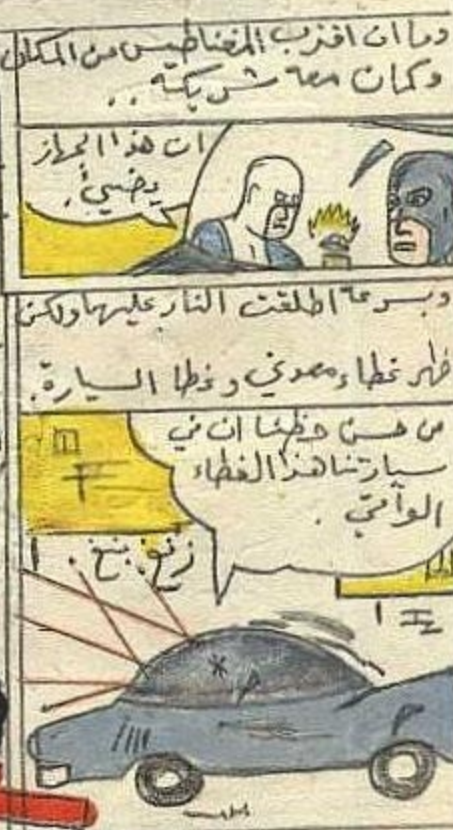 وما ان اقترب المغناطيس من المكان
وكان معه شريكه ..
ان هذا الجهاز
يضيئ !
وبسرعة اطلقت النار عليهما ولكن
ظهر غطاء معدني وغطا السيارة.
من حسن حظنا ان في
سيارتنا هذا الغطاء
الواقي .
زنغ. بنغ.